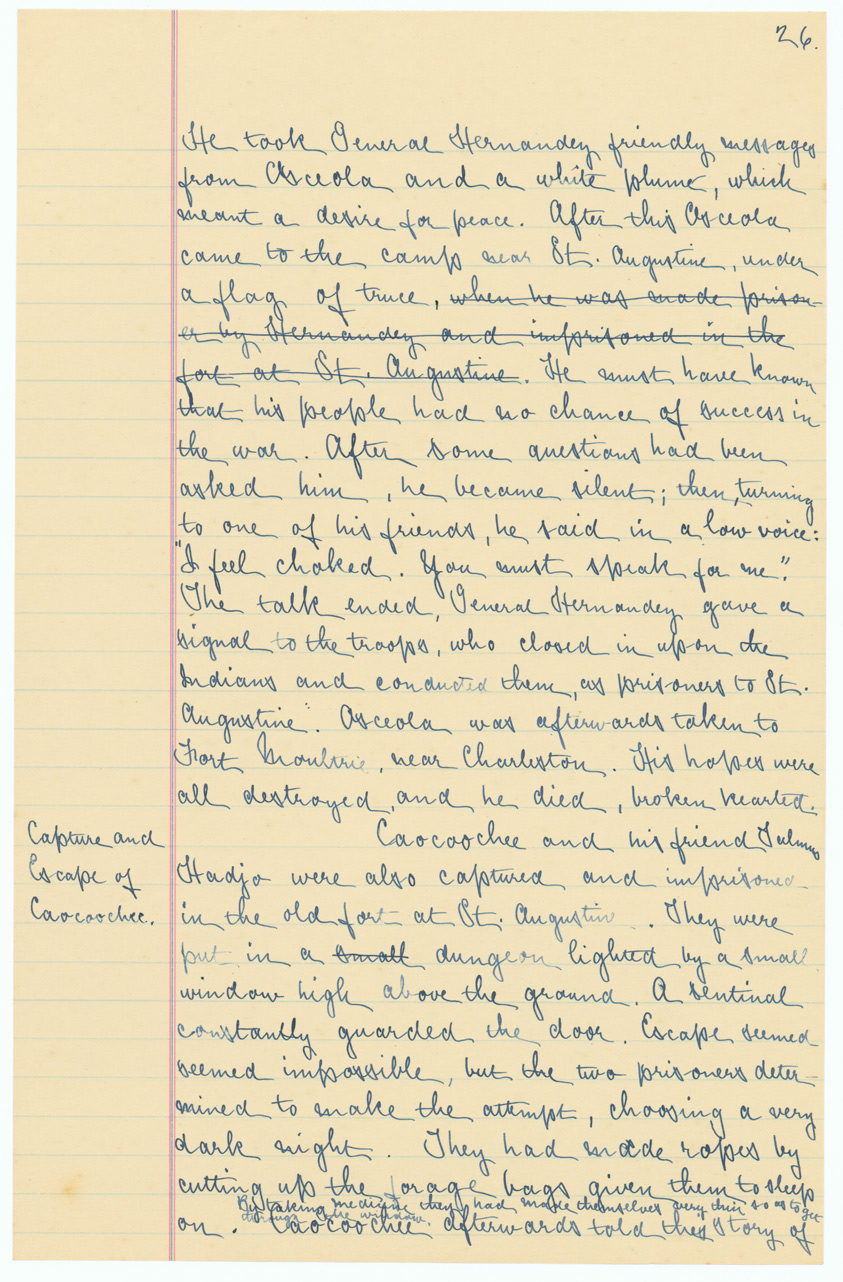 26.
He took General Hernandez friendly messages
from Osceola and a white plume, which
meant a desire for peace. After this Osceola
came to the camp near St. Augustine, under
a flag of truce, when he was made prison-
er by Hernandez and imprisoned in the
fort at St. Augustine. He must have known
that his people had no chance of success in
the war. After some questions had been
asked him, he became silent; then, turning
to one of his friends, he said in a low voice:
"I feel choked. You must speak for me."
The talk ended, General Hernandez gave a
signal to the troops, who closed in upon the
Indians and conducted them, as prisoners to St.
Augustine". Osceola was afterwards taken to
Fort Moultrie, near Charleston. His hopes were
all destroyed, and he died, broken hearted.
Capture and
Escape of
Caocoochee.
Caocoochee and his friend Talmus
Hadjo were also captured and imprisoned
in the old fort at St. Augustine. They were
put in a small dungeon lighted by a small
window high above the ground. A sentinal
constantly guarded the door. Escape seemed
seemed impossible, but the two prisoners deter-
mined to make the attempt, choosing a very
dark night. They had made ropes by
cutting up the forage bags given them to sleep
By taking medicine they had made themselves very thin so as to get
through the window.
on. Caocoochee afterwards told the story of